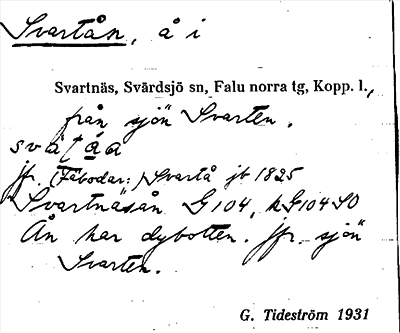 Svartån, å i
Svartnäs, Svärdsjö sn, Falu norra tg, Kopp. l.,
från sjön Svarten.
jfr (Fäbodar:) Svartå jb 1825
Svartnäsån G104, hG104SO
Ån har dybotten. Jfr sjön
Svarten.
G. Tideström 1931